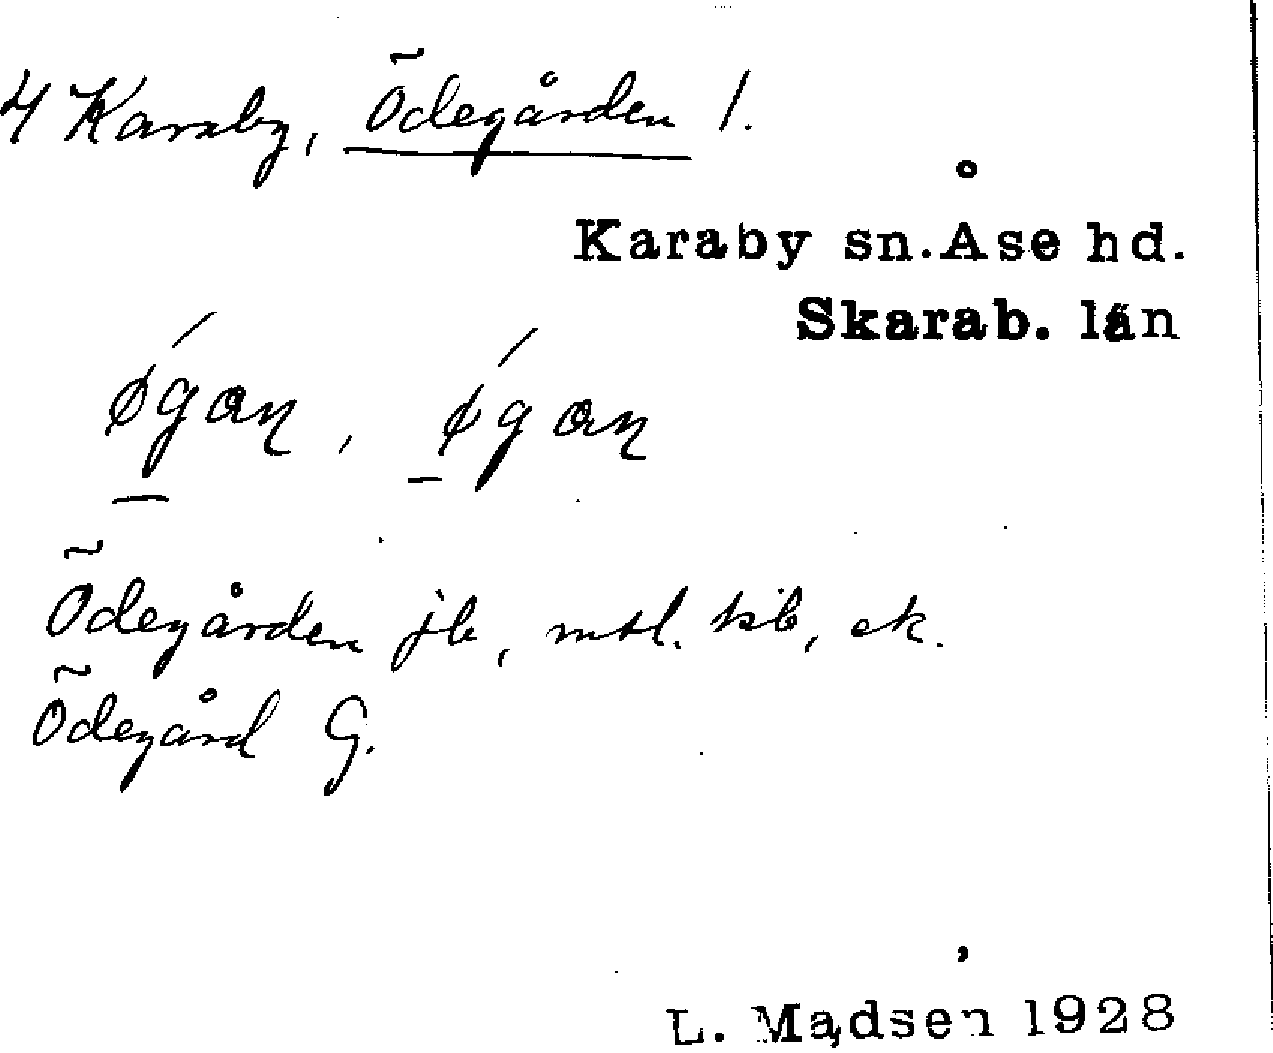 4 Karaby, Ödegården 1.
Karaby sn. Åse hd.
Skarab. län
ǿgan, ǿgan
Ödegården jb, mtl. kib, ek.
Ödegård G.
L. Madsen 1928